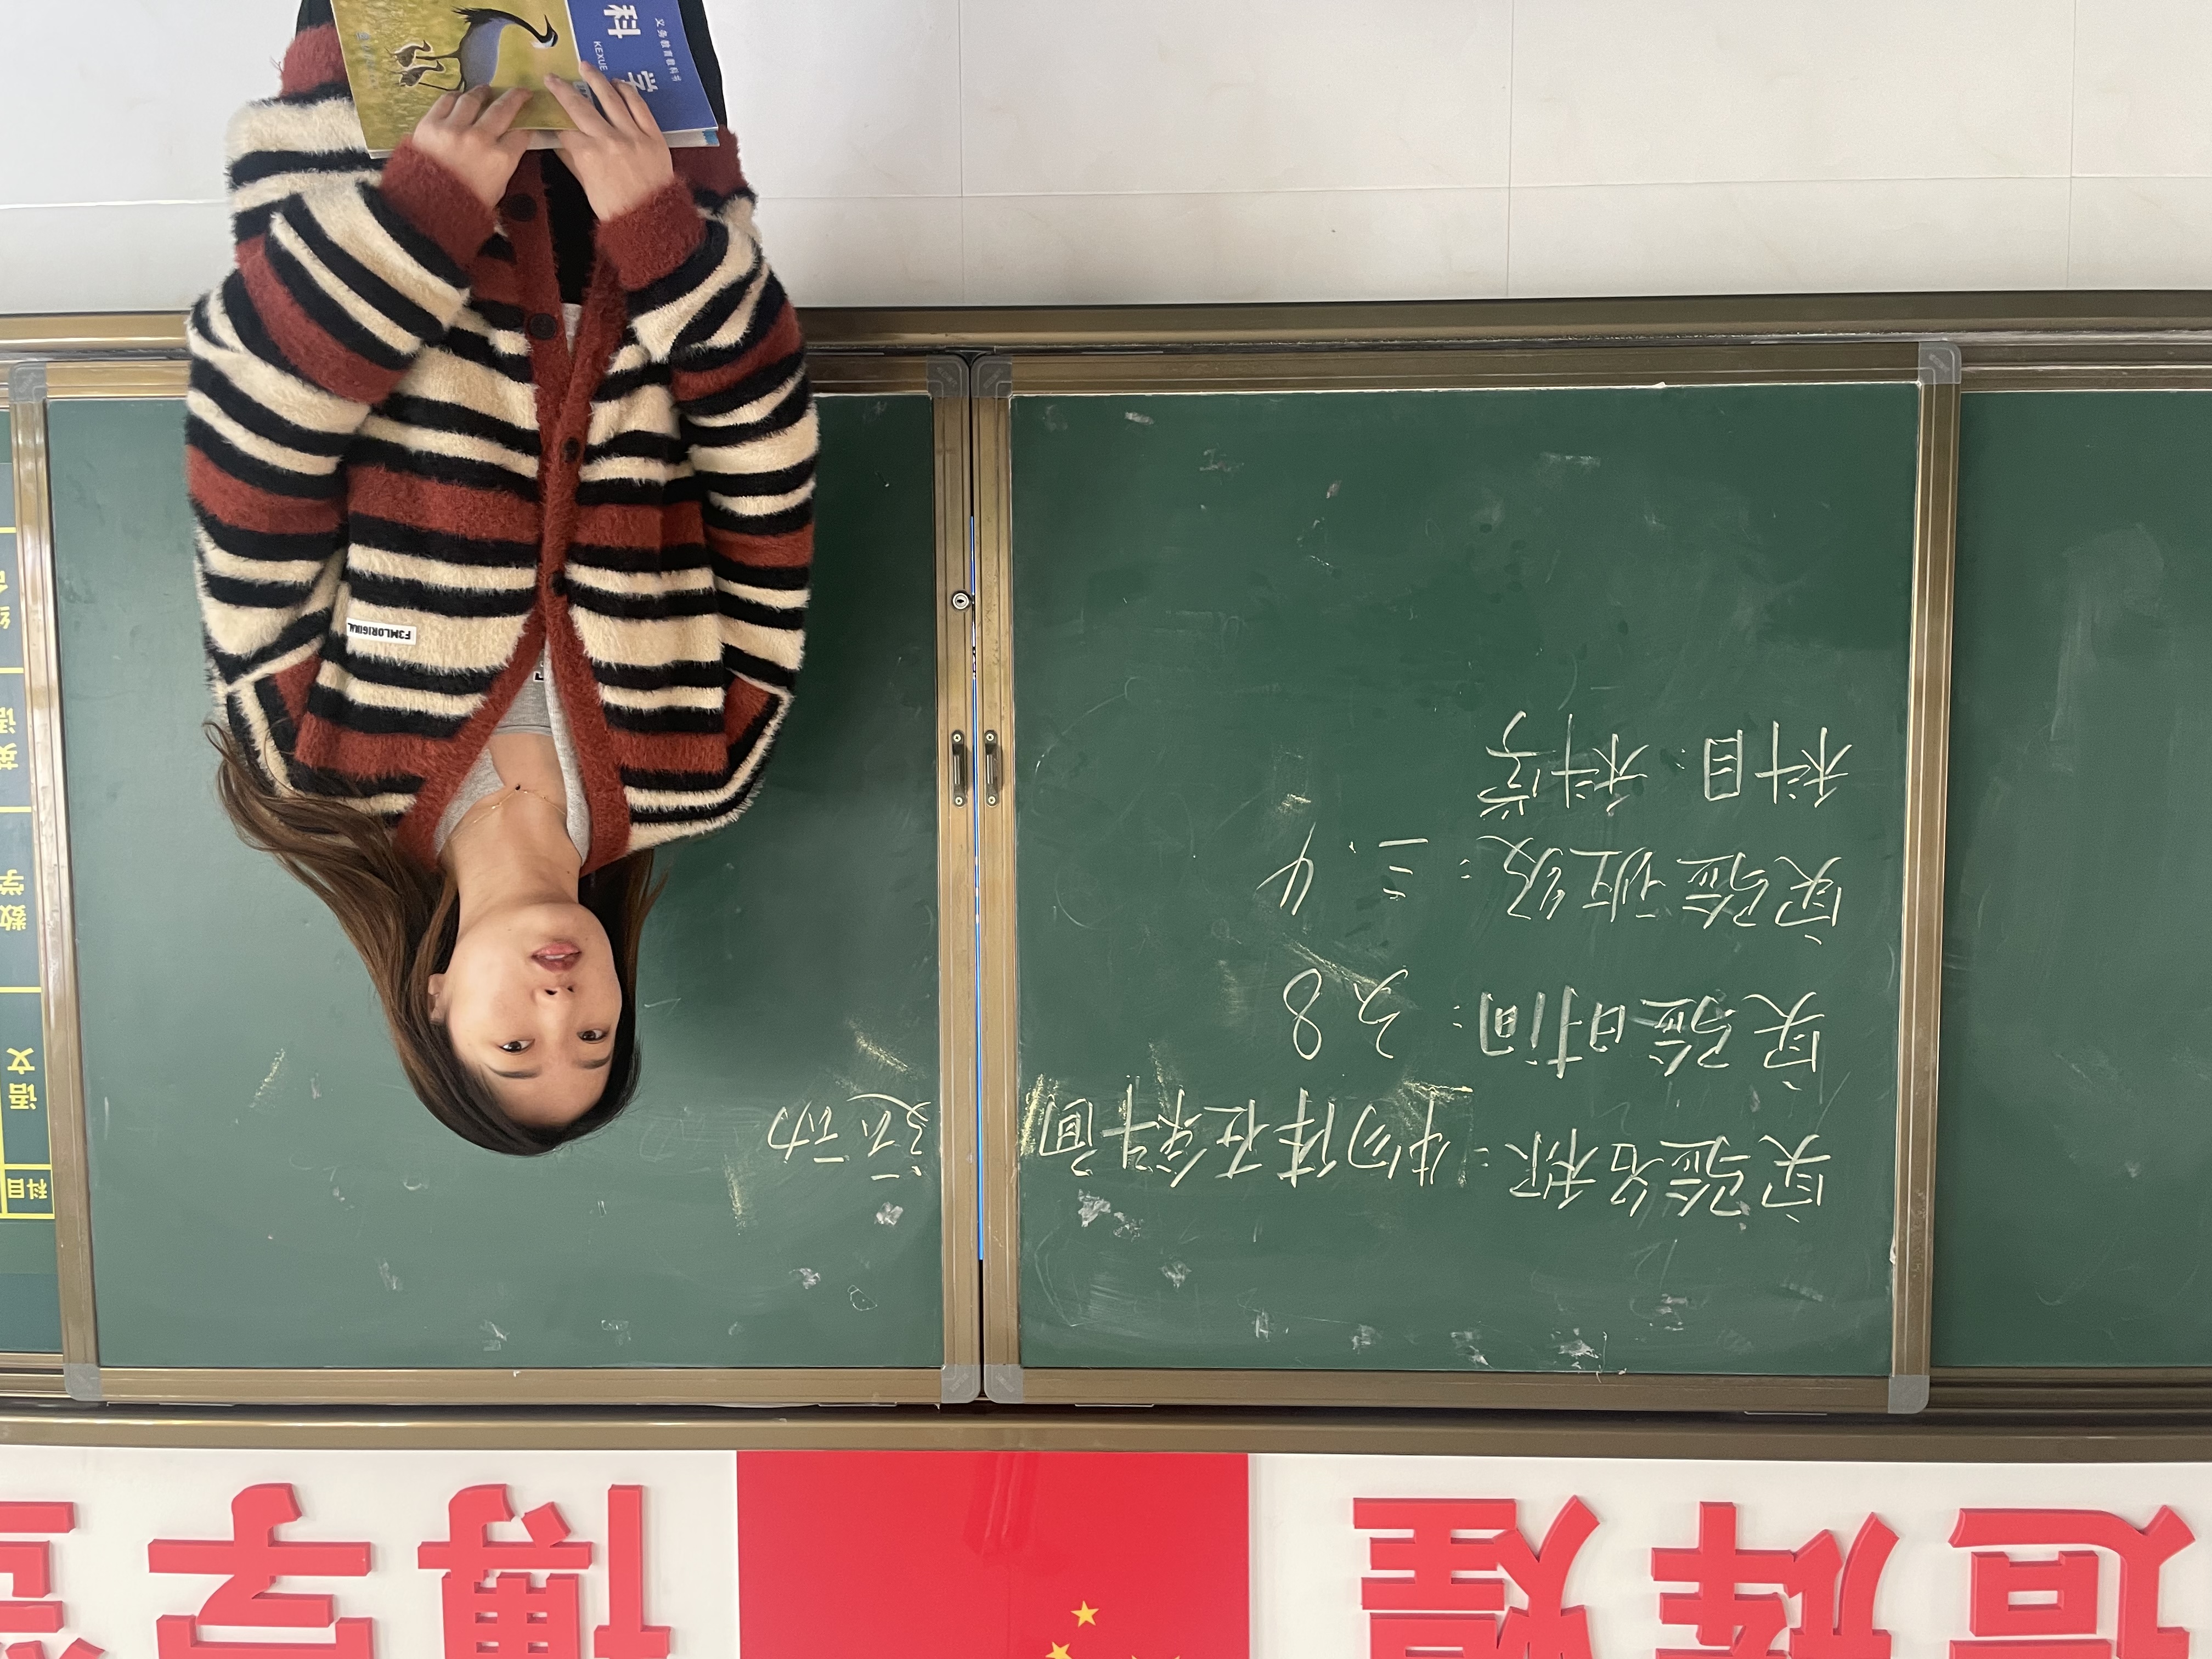 造辉煌
博学
实验名称：物体在斜面运动
实验时间：3.8
实验班级：三.4
科目：科学
科目
语文
数学
英语
F3MLORIGINAL
义务教育教科书
科学
KEXUE